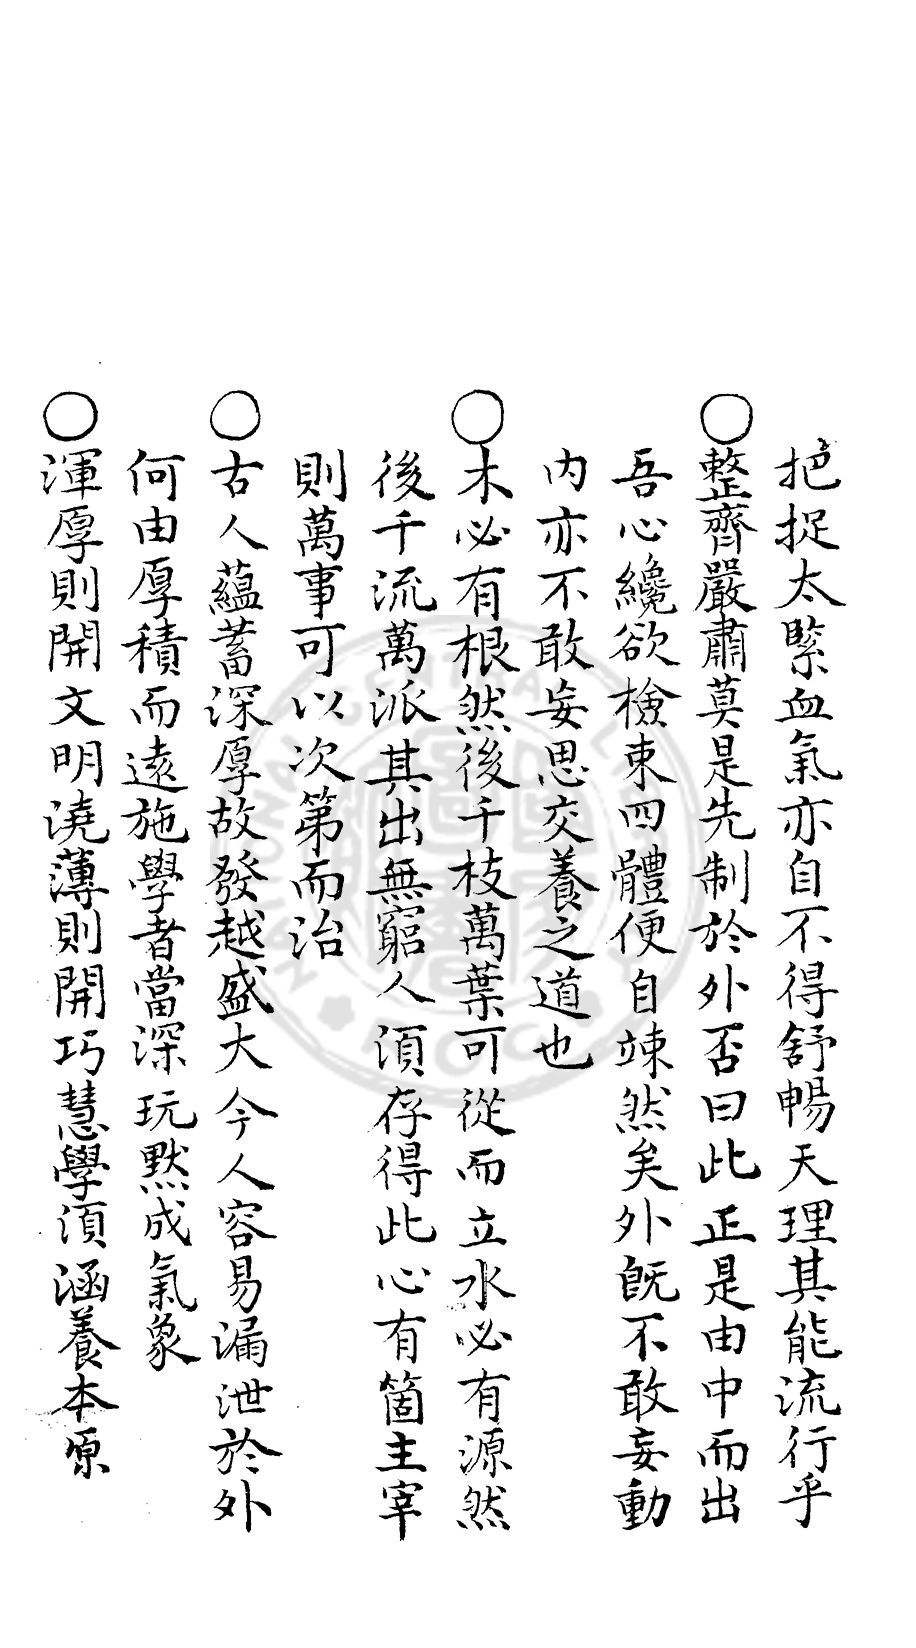 把捉太緊血氣亦自不得舒暢天理其能流行乎
○整齊嚴肅莫是先制於外否曰此正是由中而出
吾心纔欲檢束四體便自竦然矣外既不敢妄動
內亦不敢妄思交養之道也
○木必有根然後千枝萬葉可從而立水必有源然
後千流萬派其出無窮人須存得此心有箇主宰
則萬事可以次第而治
○古人蘊蓄深厚故發越盛大今人容易漏泄於外
何由厚積而遠施學者當深玩默成氣象
○渾厚則開文明澆薄則開巧慧學須涵養本原